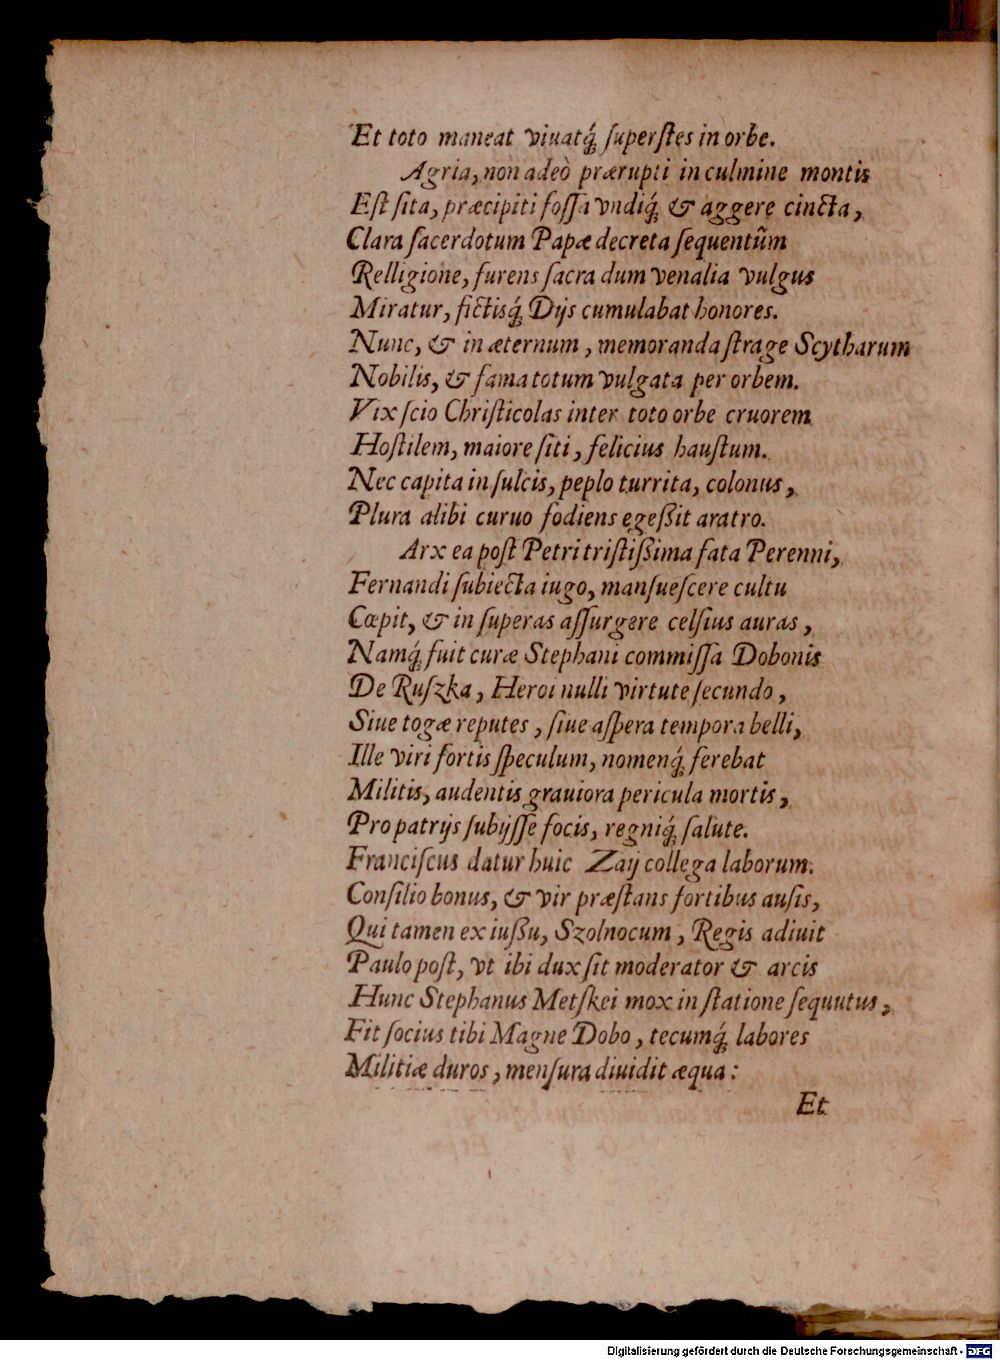 Et toto maneat viuatq́; ſuperſtes in orbe.
Agria, non adeò prærupti in culmine montis
Eſt ſita, præcipiti foſſa vndiq́; & aggere cincta,
Clara ſacerdotum Papæ decreta ſequentũm
Relligione, furens ſacra dum venalia vulgus
Miratur, fictisq́; Dijs cumulabat honores.
Nunc, & in æternum, memoranda ſtrage Scytharum
Nobilis, & fama totum vulgata per orbem.
Vix ſcio Chriſticolas inter toto orbe cruorem
Hoſtilem, maiore ſiti, felicius hauſtum.
Nec capita in ſulcis, peplo turrita, colonus,
Plura alibi curuo fodiens egeßit aratro.
Arx ea poſt Petri triſtißima fata Perenni,
Fernandi ſubiecta iugo, manſueſcere cultu
Cœpit, & in ſuperas aſſurgere celſius auras,
Namq́; fuit curæ Stephani commiſſa Dobonis
De Ruſzka, Heroi nulli virtute ſecundo,
Siue togæ reputes, ſiue aſpera tempora belli,
Ille viri fortis ſpeculum, nomenq́; ferebat
Militis, audentis grauiora pericula mortis,
Pro patrijs ſubijſſe focis, regniq́; ſalute.
Franciſcus datur huic Zaij collega laborum.
Conſilio bonus, & vir præſtans fortibus auſis,
Qui tamen ex iußu, Szolnocum, Regis adiuit
Paulo poſt, vt ibi dux ſit moderator & arcis
Hunc Stephanus Metſkei mox in ſtatione ſequutus,
Fit ſocius tibi Magne Dobo, tecumq́; labores
Militiæ duros, menſura diuidit æqua:
Et
Digitalisierung gefördert durch die Deutsche Forschungsgemeinschaft - DFG